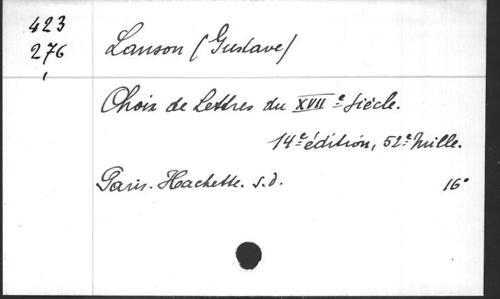 423
276
Lanson (Gustave)
Choix de Lettres du XVIIe Siècle.
14e édition, 52e mille.
Paris. Hachette. s.d. 16°